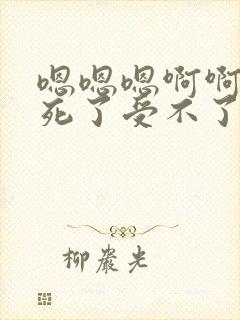 嗯嗯嗯啊啊
死了受不了
柳岩光